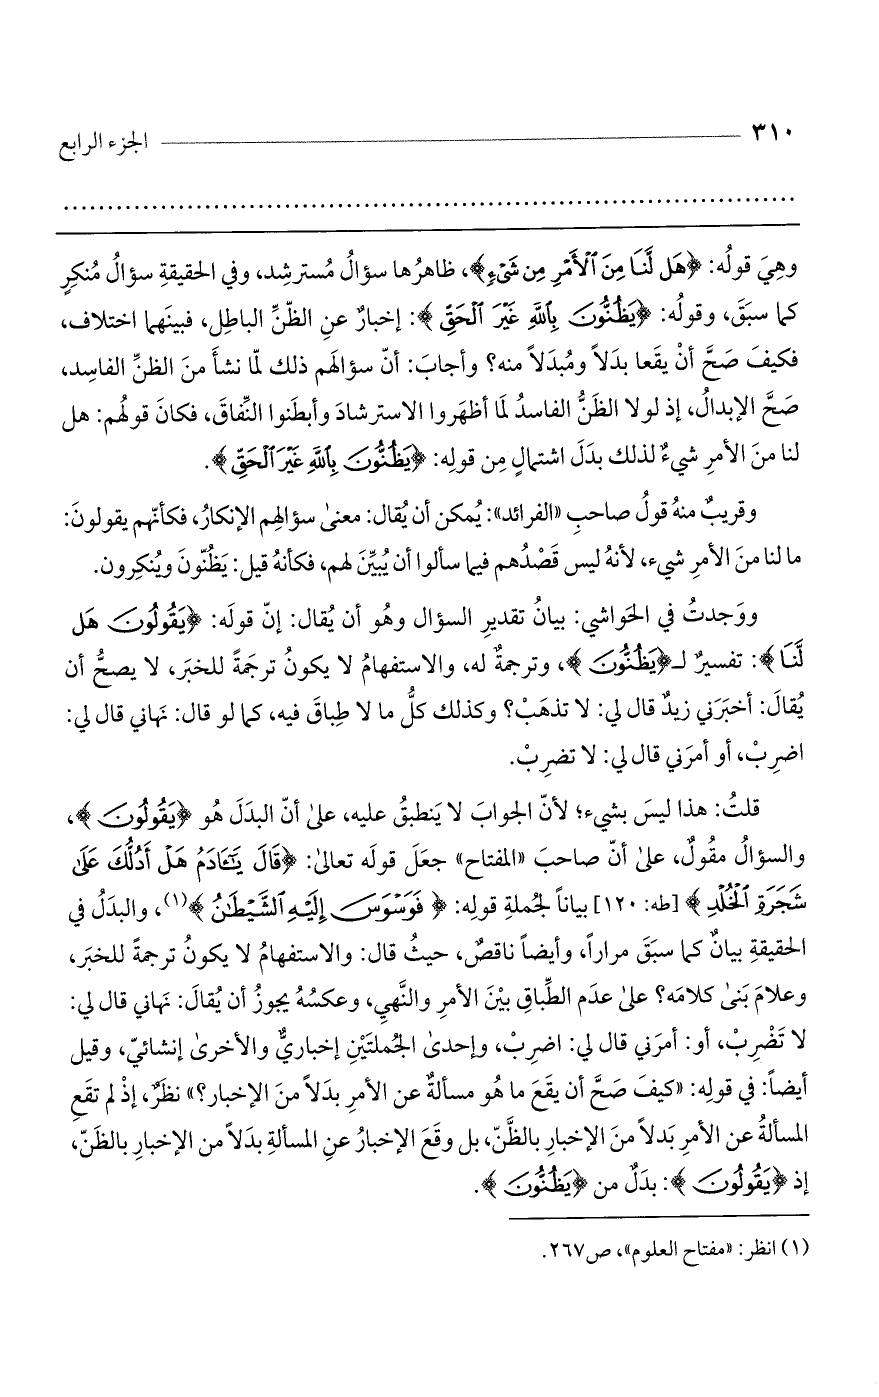 ٣١٠ ـــــــــــــــــــــــــــــــــــــــــــــــــــــــــــ الجزء الرابع
................................................................................
وهِيَ قولُه: ﴿هَل لَّنَا مِنَ ٱلْأَمْرِ مِن شَىْءٍ﴾، ظاهرُها سؤالُ مُسترشِد، وفي الحقيقةِ سؤالُ مُنكِرٍ
كما سبَقَ، وقولُه: ﴿يَظُنُّونَ بِٱللَّهِ غَيْرَ ٱلْحَقِّ﴾: إخبارٌ عنِ الظّنِّ الباطِلِ، فبينَهما اختلاف،
فكيفَ صَحَّ أنْ يقَعا بدَلاً ومُبدَلاً منه؟ وأجابَ: أنّ سؤالهَم ذلك لمّا نشأَ منَ الظنِّ الفاسِد،
صَحَّ الإبدالُ، إذ لولا الظَنُّ الفاسدُ لَما أظهَروا الاسترشادَ وأبطَنوا النِّفاقَ، فكانَ قولهُم: هل
لنا منَ الأمرِ شيءٌ لذلك بدَلَ اشتمالٍ مِن قولِه: ﴿يَظُنُّونَ بِٱللَّهِ غَيْرَ ٱلْحَقِّ﴾.
وقريبٌ منهُ قولُ صاحبِ «الفرائد»: يُمكن أن يُقال: معنىٰ سؤالهِم الإنكارُ، فكأنّهم يقولونَ:
ما لنا منَ الأمرِ شيء، لأنهُ ليس قَصْدُهم فيما سألوا أن يُبيِّنَ لهم، فكأنهُ قيل: يَظُنّونَ ويُنكِرون.
ووَجدتُ في الحَواشي: بيانُ تقديرِ السؤال وهُو أن يُقال: إنّ قولَه: ﴿يَقُولُونَ هَل
لَّنَا﴾: تفسيرٌ لـ﴿يَظُنُّونَ﴾، وترجمةٌ له، والاستفهامُ لا يكونُ ترجَمةً للخبَر، لا يصحُّ أن
يُقالَ: أخبَرَني زيدٌ قال لي: لا تذهَبْ؟ وكذلك كلُّ ما لا طِباقَ فيه، كما لو قال: نهَاني قال لي:
اضرِبْ، أو أمرَني قال لي: لا تضرِبْ.
قلتُ: هذا ليسَ بشيء؛ لأنّ الجوابَ لا يَنطبقُ عليه، علىٰ أنّ البدَلَ هُو ﴿يَقُولُونَ﴾،
والسؤالُ مقُولٌ، علىٰ أنّ صاحبَ «المفتاح» جعَلَ قولَه تعالىٰ: ﴿قَالَ يَـٰٓـَٔادَمُ هَلْ أَدُلُّكَ عَلَىٰ
شَجَرَةِ ٱلْخُلْدِ﴾ [طه: ١٢٠] بياناً لجُملةِ قولِه: ﴿فَوَسْوَسَ إِلَيْهِ ٱلشَّيْطَـٰنُ﴾(١)، والبدَلُ في
الحقيقةِ بيانٌ كما سبَقَ مراراً، وأيضاً ناقصٌ، حيثُ قال: والاستفهامُ لا يكونُ ترجمةً للخبَر،
وعلامَ بَنىٰ كلامَه؟ علىٰ عدَم الطِّباقِ بيْنَ الأمرِ والنَّهيِ، وعكسُهُ يجوزُ أن يُقالَ: نهَاني قال لي:
لا تَضْرِبْ، أو: أمرَني قال لي: اضرِبْ، وإحدىٰ الجُملتَيْنِ إخباريٌّ والأخرىٰ إنشائيّ، وقيل
أيضاً: في قولِه: «كيفَ صَحَّ أن يقَعَ ما هُو مسألةٌ عن الأمرِ بدَلاً منَ الإخبار؟» نظَرٌ، إذْ لم تقَعِ
المسألةُ عن الأمرِ بَدلاً منَ الإخبارِ بالظَّنّ، بل وقَعَ الإخبارُ عنِ المسألةِ بدَلاً من الإخبارِ بالظَنّ،
إذ ﴿يَقُولُونَ﴾: بدَلٌ من ﴿يَظُنُّونَ﴾.
(١) انظر: «مفتاح العلوم»، ص٢٦٧.